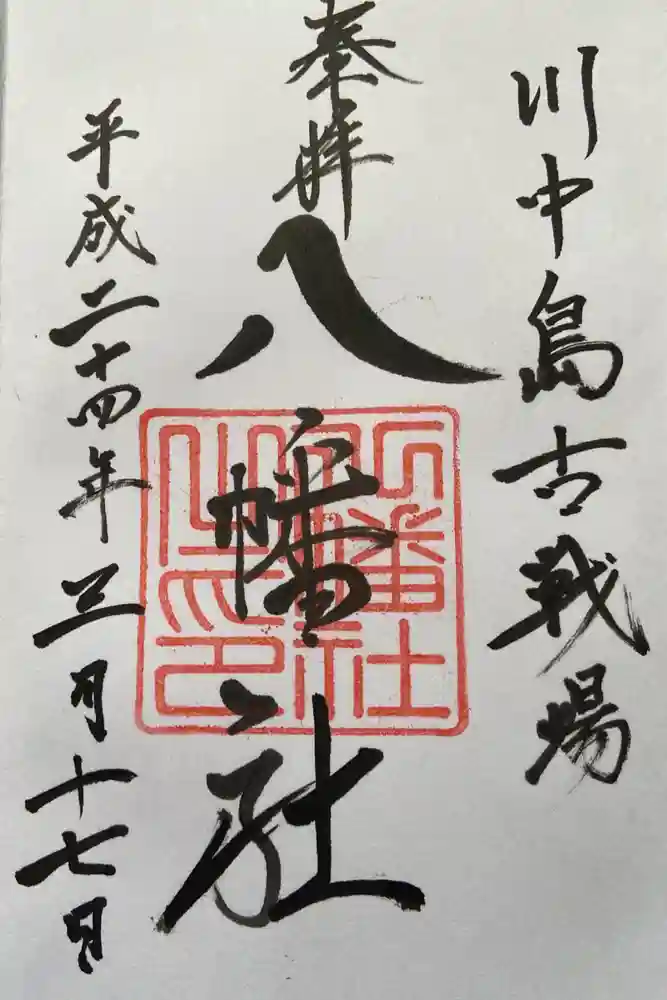 川中島古戦場
奉拝
八幡社
平成二十四年三月十七日